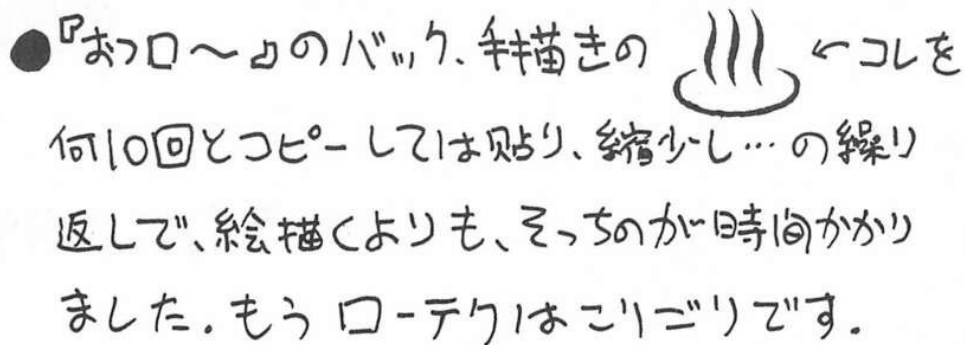 ●『おフロ〜』のバック、手描きの ♨ ←コレを
何10回とコピーしては貼り、縮少し…の繰り
返しで、絵描くよりも、そっちのが時間かかり
ました。もうローテクはこりごりです。